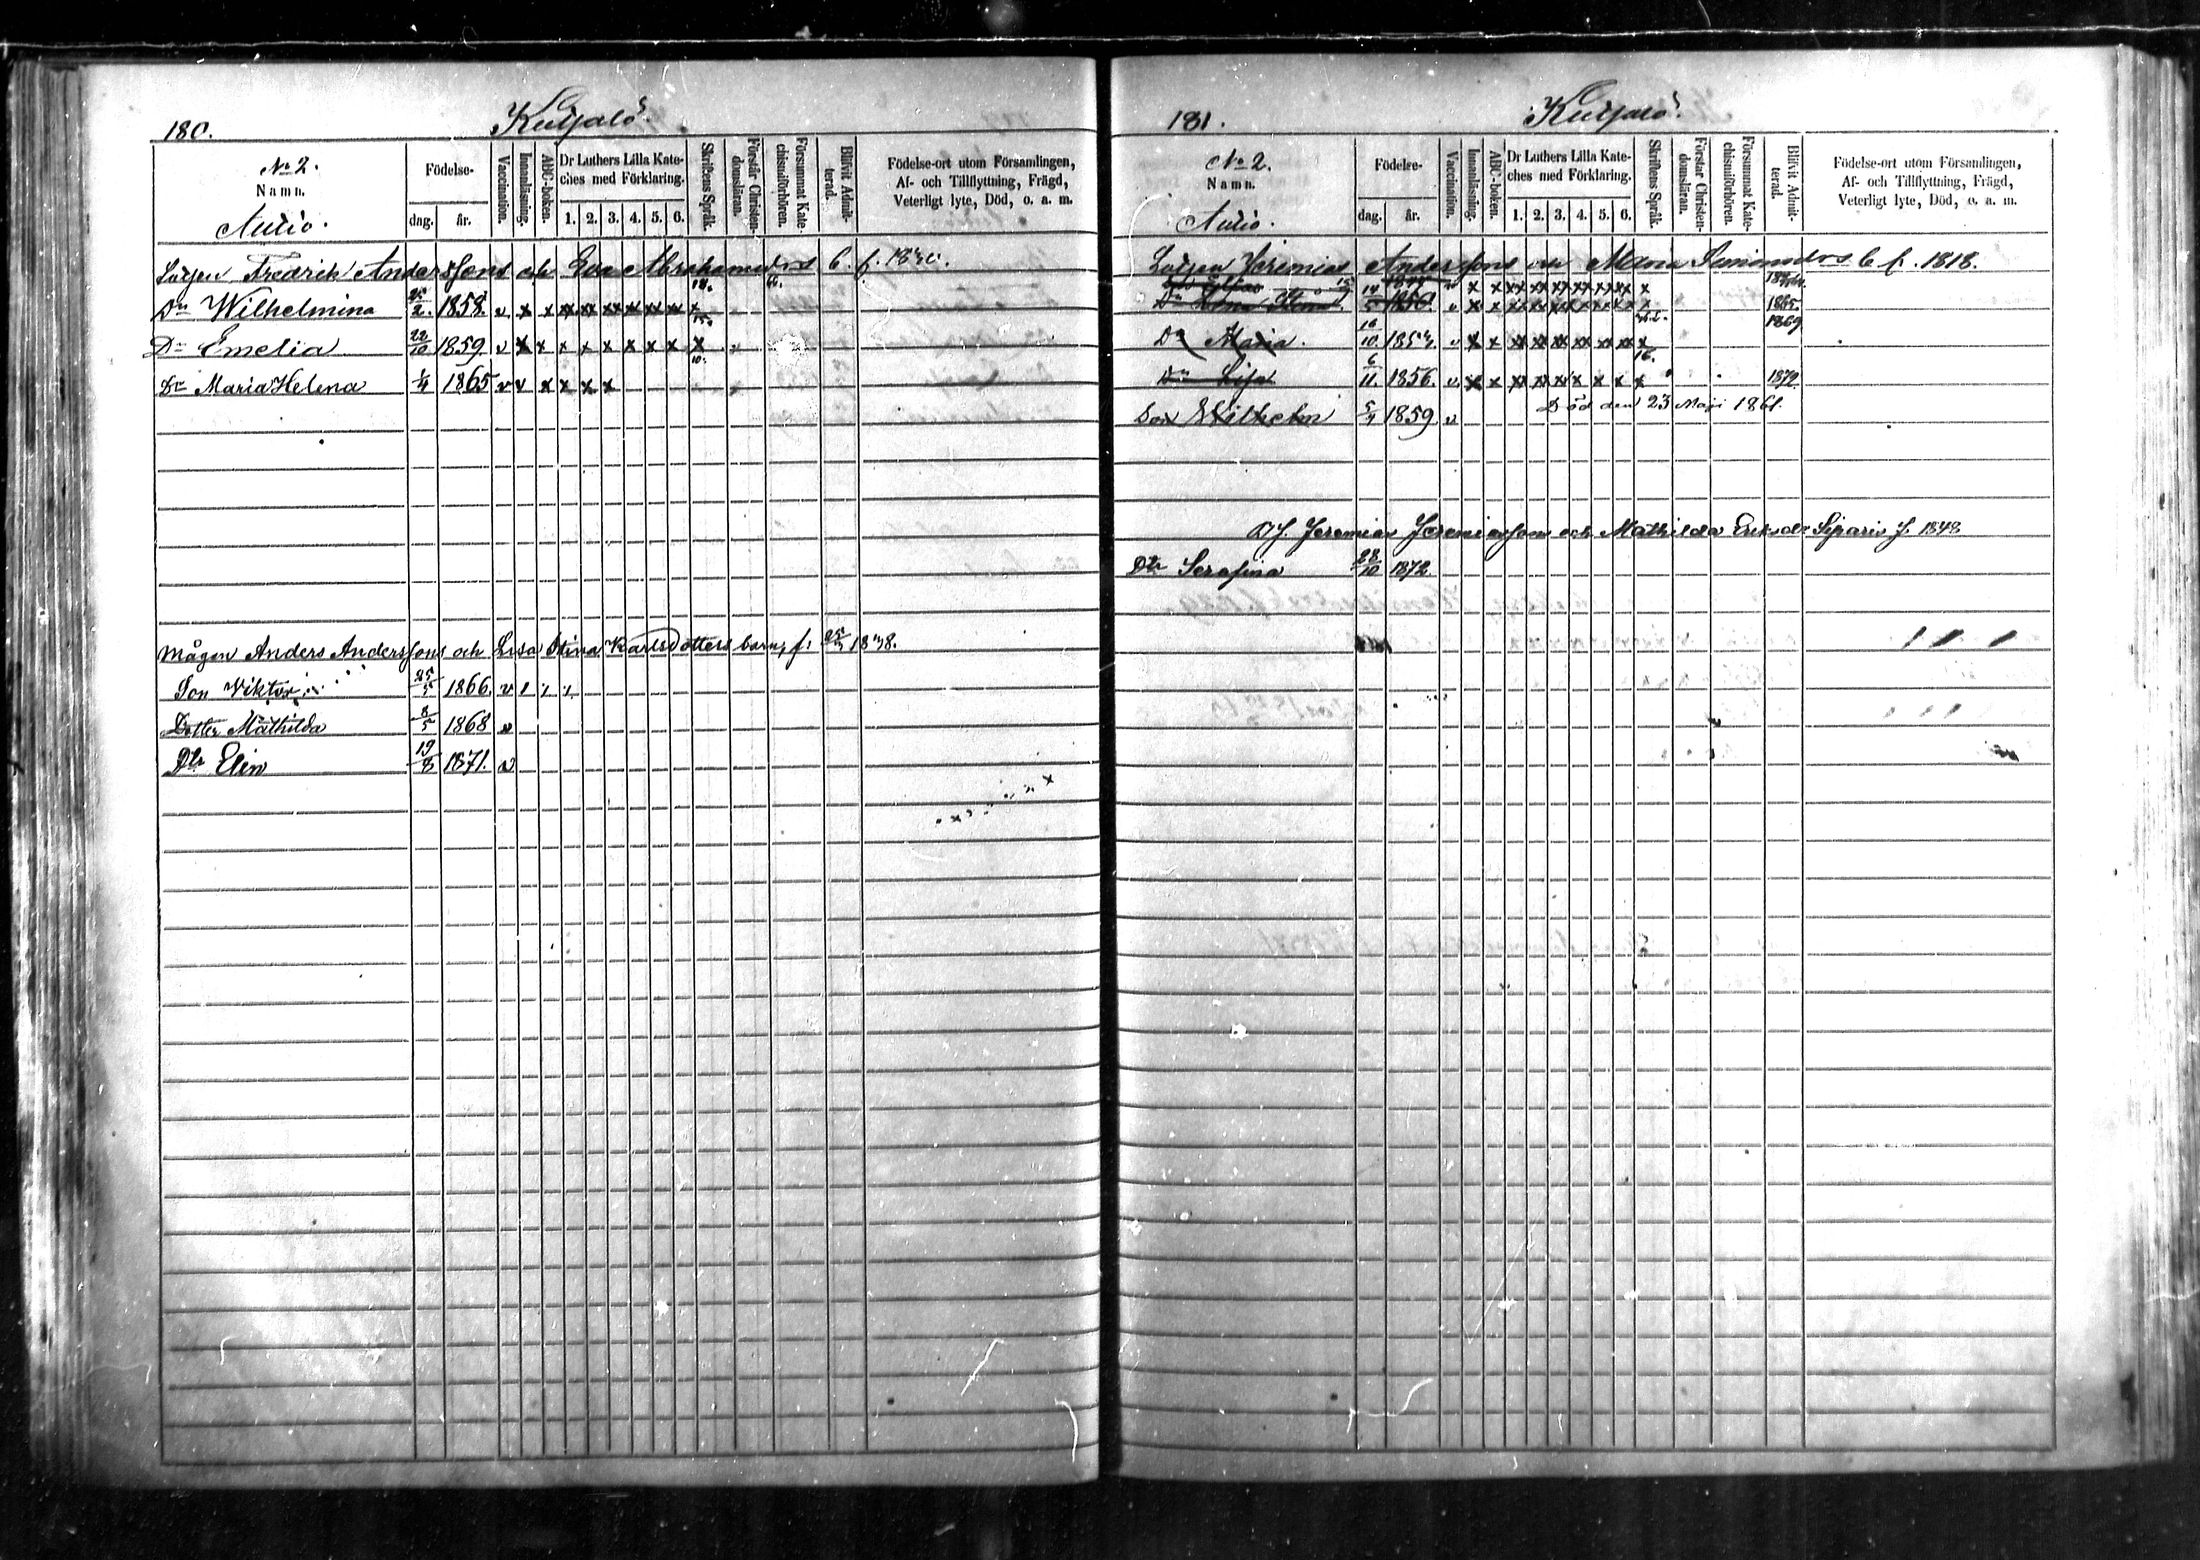 180.
Kuijalo.
No 2.
Namn.
Aulio.
Födelse-
dag. år.
Vaccination.
Innanläsning.
ABC-boken.
Dr Luthers Lilla Kateches med Förklaring.
1. 2. 3. 4. 5. 6.
Skriftens Språk.
Förstår Christendomsläran.
Försummat Katechismiförhören.
Blifvit Admitterad.
Födelse-ort utom Församlingen,
Af- och Tillflyttning, Frägd,
Veterligt lyte, Död, o. a. m.
Fredrik Anderssons och Eva Abrahamsdrs b. f.
Dr Wilhelmina 2. 1858. v x x xx xx xx xx xx xx x
Dr Emelia 22/10 1859 v x x x x x x x x x
Dr Maria Helena 1/4 1865 v v x x x x
Mågen Anders Anderssons och Lisa Stina Karlsdotters barn, f.
Son Viktor 25/5 1866. v
Dotter Mathilda 8/5 1868 v
Dtr Elin 19/8 1871. v
181.
Kuijalo.
No 2.
Namn.
Aulio.
Födelse-
dag. år.
Vaccination.
Innanläsning.
ABC-boken.
Dr Luthers Lilla Kateches med Förklaring.
1. 2. 3. 4. 5. 6.
Skriftens Språk.
Förstår Christendomsläran.
Försummat Katechismiförhören.
Blifvit Admitterad.
Födelse-ort utom Församlingen,
Af- och Tillflyttning, Frägd,
Veterligt lyte, Död, o. a. m.
Jeremias Anderssons och Maria Simonsdrs b. f. 1818.
Dr Lena 1850. v x x 1865.
Dr Maria. 16/10. v x x 1869
Dr Lisa 6/11. 1856. v x x 1872
Son Wilhelm 5/4 1859 v Död den 23 Maji 1861.
Jeremias Jeremiasson och Mathilda Eriksdr Siparis f. 1848
Dtr Serafina 28/10 1872.